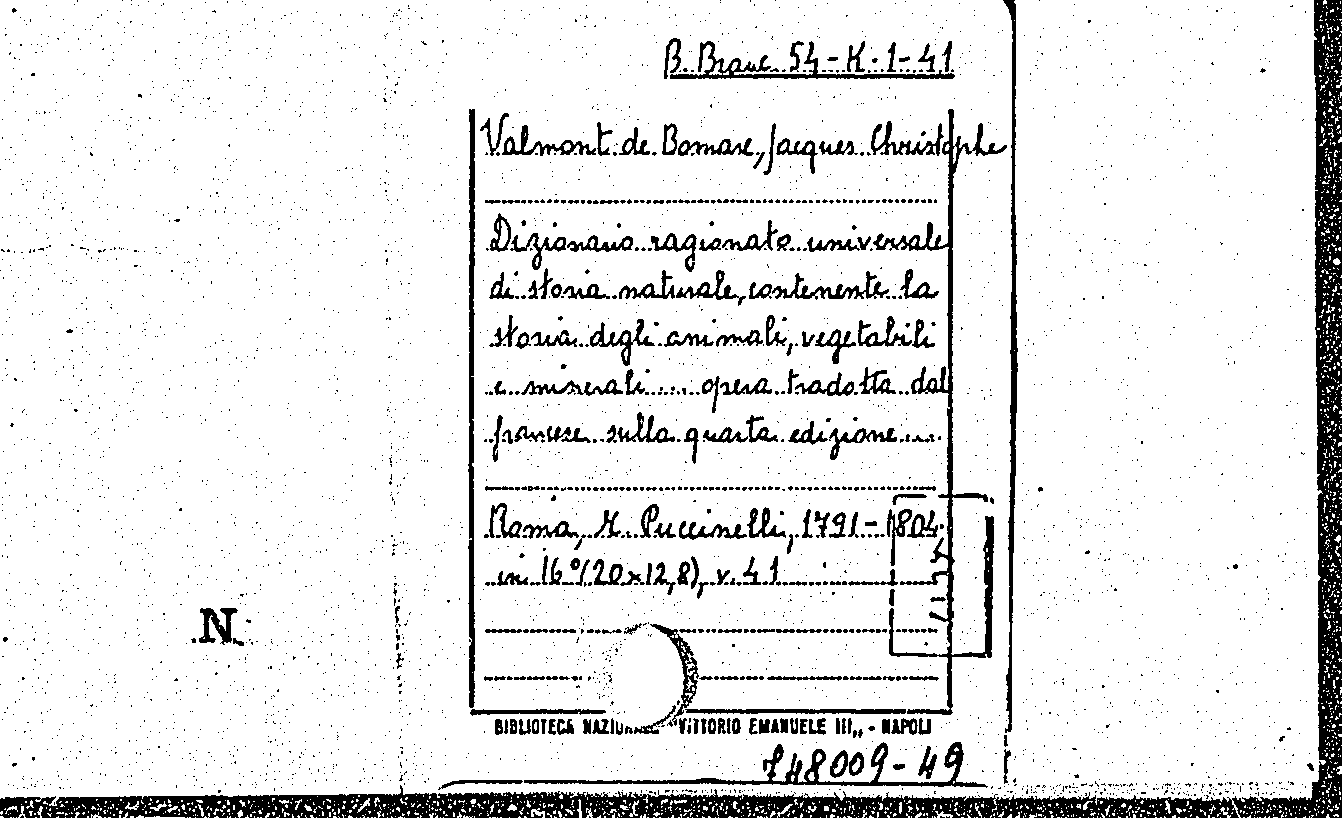 B. Branc. 54-K.1-41
Valmont de Bomare, Jacques Christophe
Dizionario ragionato universale
di storia naturale, contenente la
storia degli animali, vegetabili
e minerali ... opera tradotta dal
francese sulla quarta edizione ....
Roma, M. Puccinelli, 1791-1804.
in 16° (20x12,8), v. 41
N.
BIBLIOTECA NAZIONALE "VITTORIO EMANUELE III„ - NAPOLI
748009-49